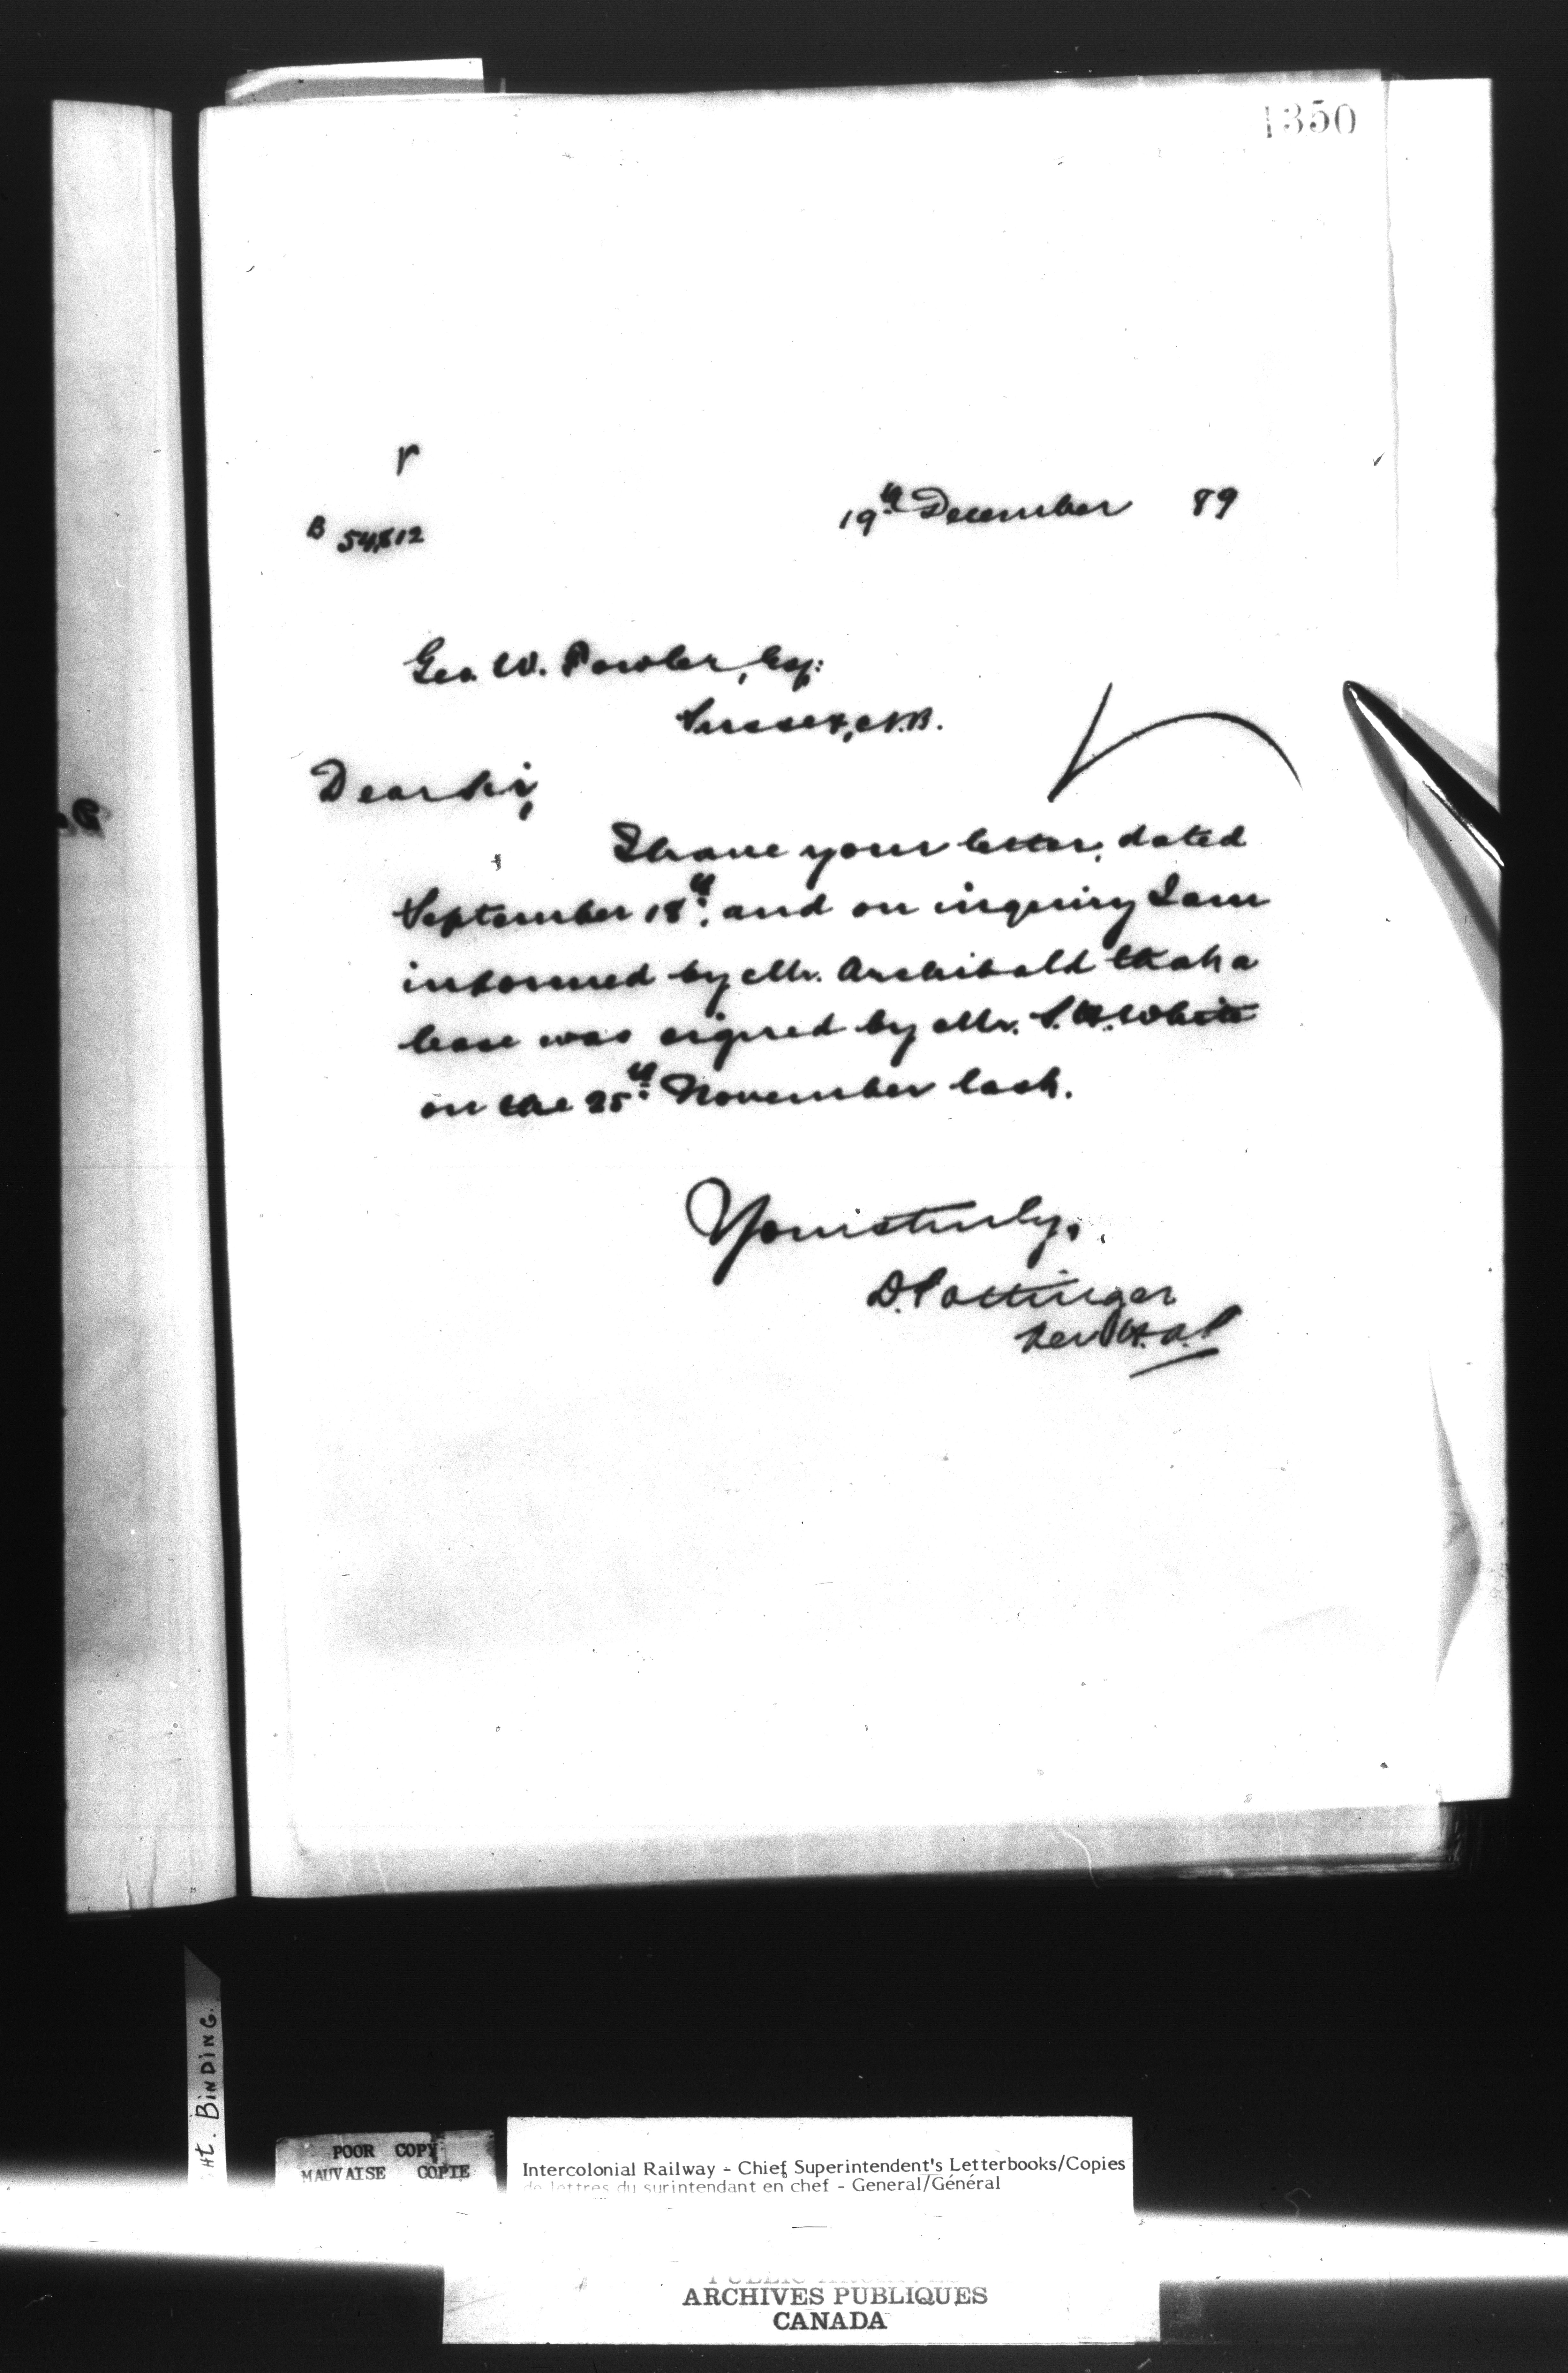 1350
r
B 54,812
19th December 89
Geo. W. Fowler, Esq:
Sussex, N.B.
Dear Sir,
I have your letter, dated
September 18th, and on inquiry I am
informed by Mr. Archibald that a
lease was signed by Mr. S. H. White
on the 25th November last.
Yours truly,
D. Pottinger
Per
Ht. BINDING.
POOR COPY
MAUVAISE COPIE
Intercolonial Railway - Chief Superintendent's Letterbooks/Copies
de lettres du surintendant en chef - General/Général
PUBLIC ARCHIVES
ARCHIVES PUBLIQUES
CANADA